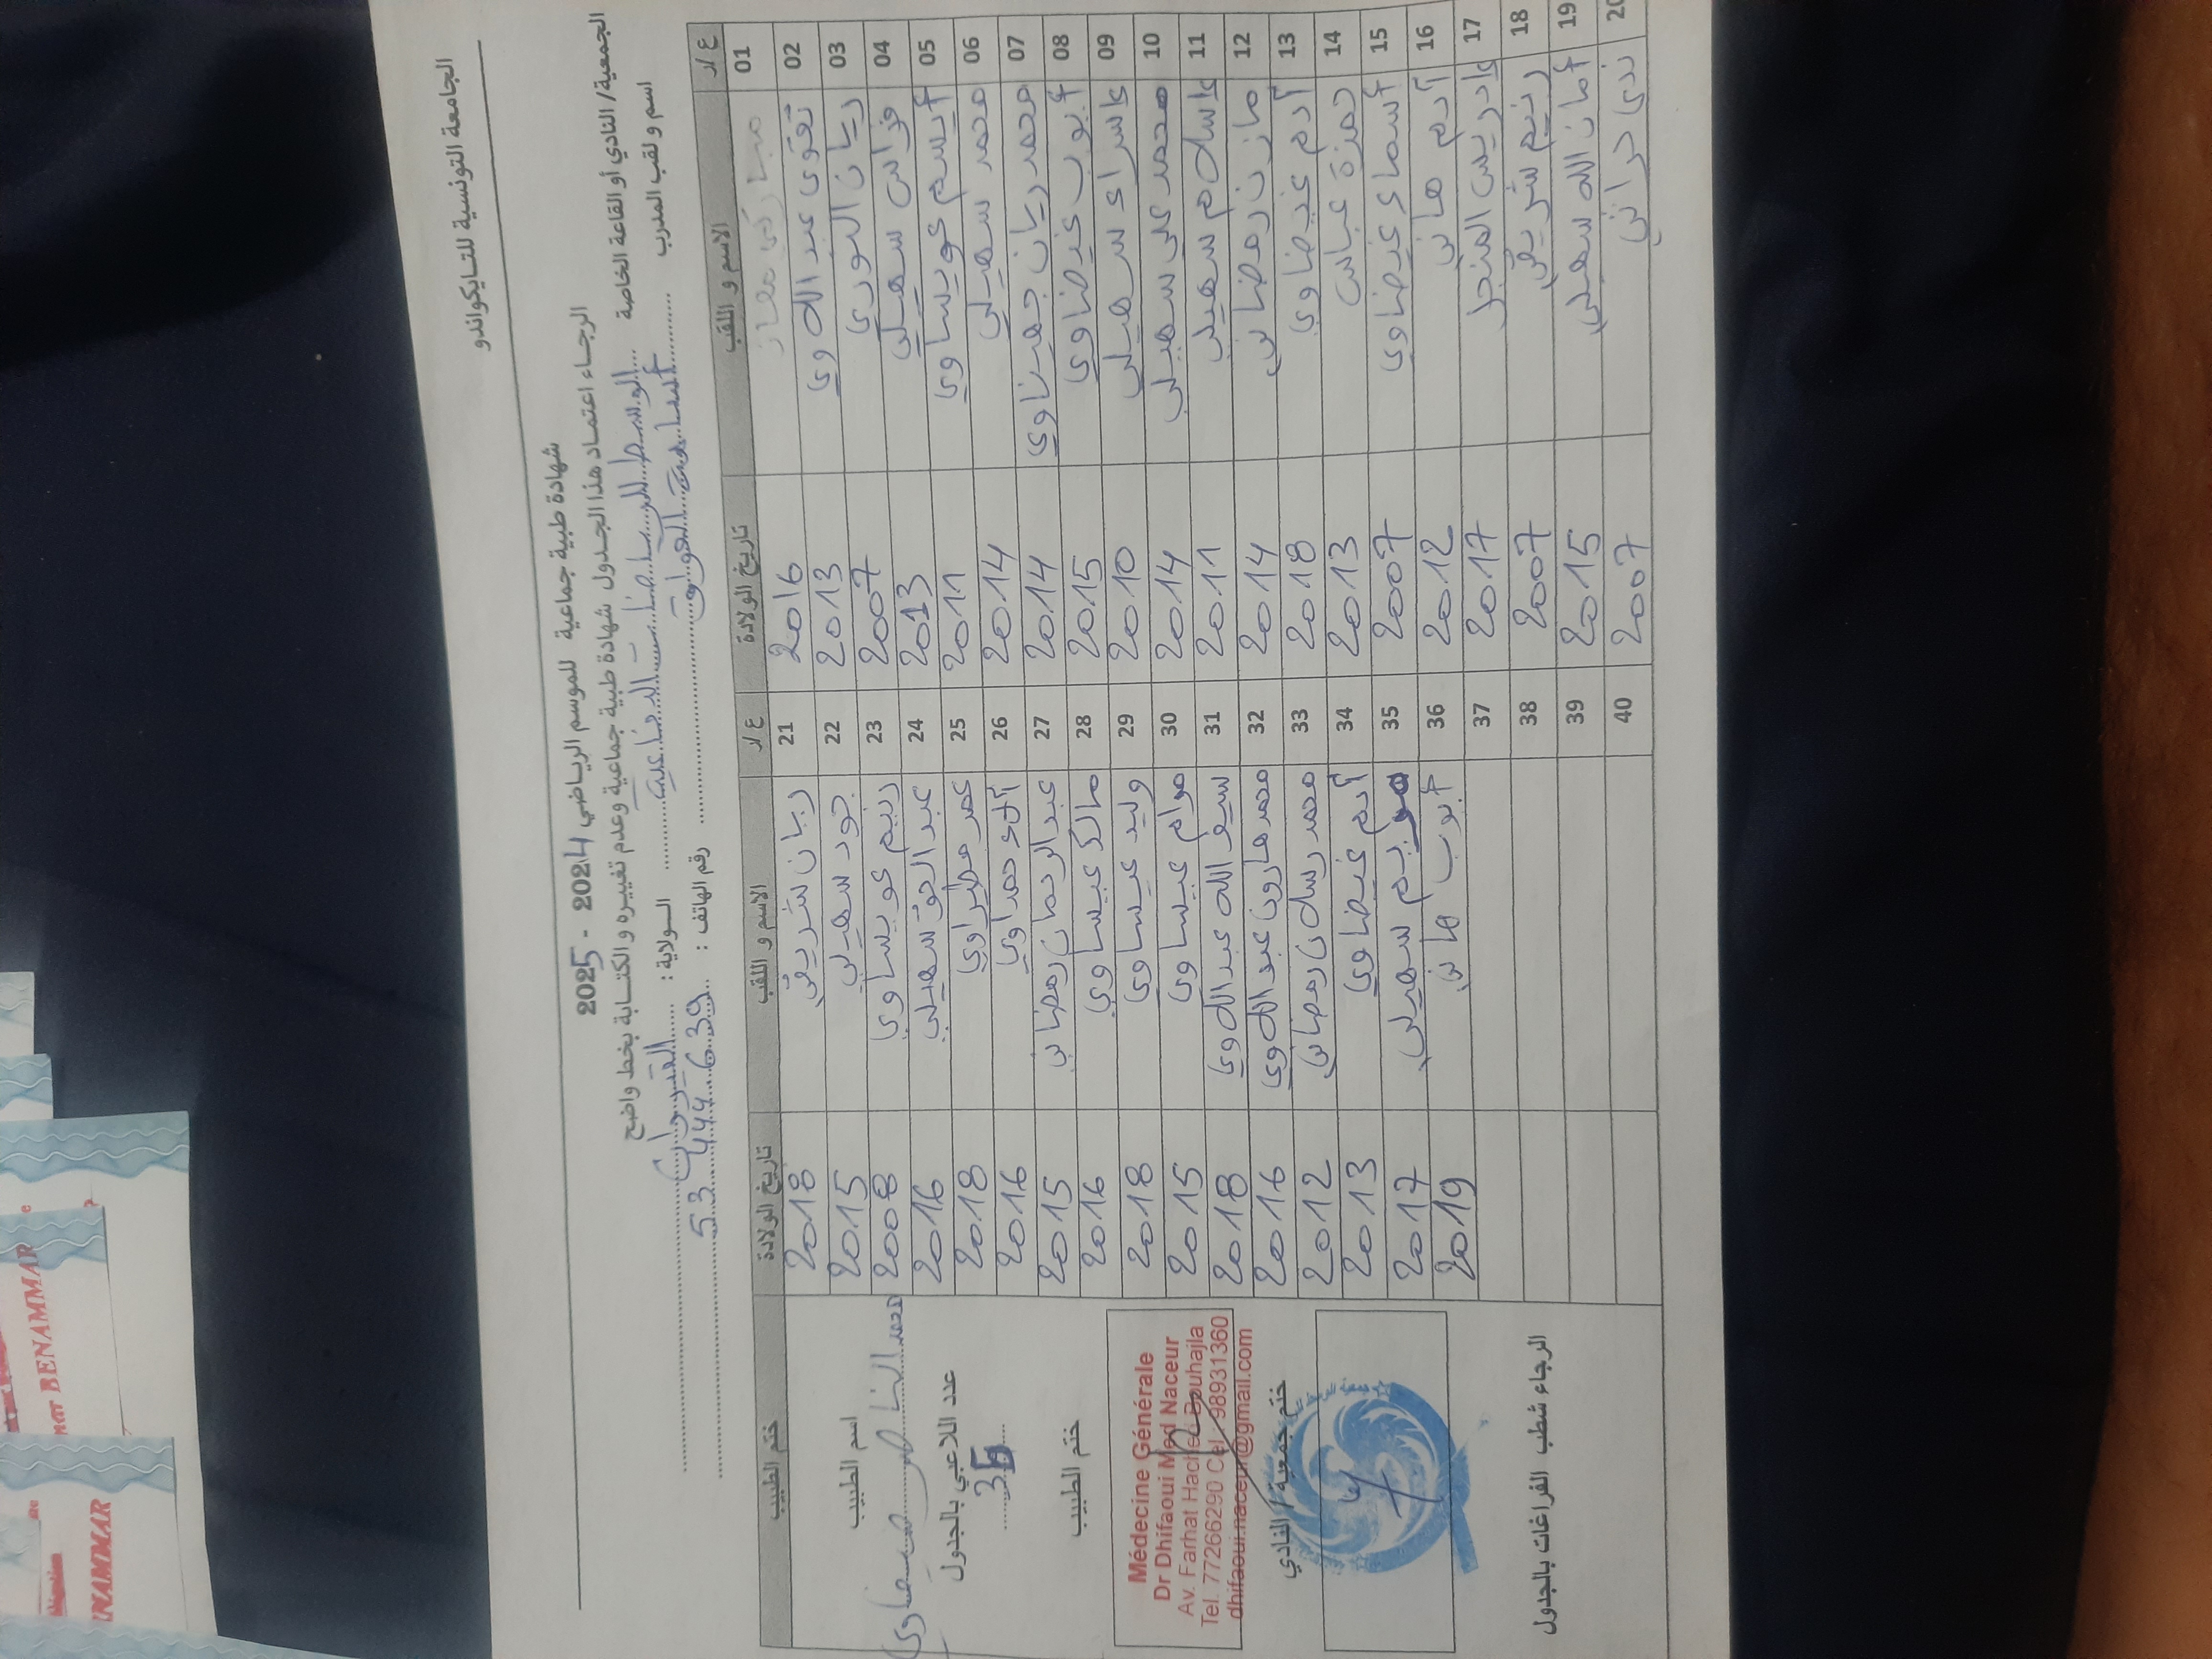 الجامعة التونسية للتايكواندو
شهادة طبية جماعية للموسم الرياضي 2024 - 2025
الرجاء اعتماد هذا الجدول شهادة طبية جماعية وعدم تغييره والكتابة بخط واضح
الجمعية/ النادي أو القاعة الخاصة الوسط للرياضات الدفاعية الولاية : القيروان
اسم و لقب المدرب أسامة رقم الهاتف : 53 444 639
ع/ر الاسم و اللقب تاريخ الولادة ع/ر الاسم و اللقب تاريخ الولادة ختم الطبيب
01 مبارك عمار 2016 21 ريان شريفي 2018
02 تقوى عبد اللاوي 2013 22 جود سهيلي 2015
03 ريان النوري 2007 23 رنيم عويساوي 2008
04 فراس سهيلي 2013 24 عبد الحق سهيلي 2016
05 أيسم عويساوي 2011 25 عمر مطيراوي 2018
06 محمد سهيلي 2014 26 آلاء حمداوي 2016
07 محمد ريان جهيناوي 2014 27 عبد الرحمان رمضاني 2015
08 أيوب غيضاوي 2015 28 مالك عيساوي 2016
09 إسراء سهيلي 2010 29 وليد عيساوي 2018
10 محمد علي سهيلي 2014 30 مرام عيساوي 2015
11 إسلام سهيلي 2011 31 سيف الله عبد اللاوي 2018
12 مازن رمضاني 2014 32 محمد هارون عبد اللاوي 2016
13 آدم غيضاوي 2018 33 محمد رسلان رمضاني 2012
14 حمزة عباس 2013 34 آدم غيضاوي 2013
15 أسماء غيضاوي 2007 35 مريم سهيلي 2017
16 آدم هاني 2012 36 أيوب هاني 2019
17 إدريس المنجل 2017 37
18 رنيم شريفي 2007 38
19 أمان الله سهيلي 2015 39
20 ندى حراثي 2007 40
اسم الطبيب
محمد الناصر ضيفاوي
عدد اللاعبي بالجدول
36
ختم الطبيب
Médecine Générale
Dr Dhifaoui Med Naceur
Av. Farhat Hached Bouhajla
Tel. 77266290 Cel. 98931360
dhifaoui.naceur@gmail.com
ختم جمعية / النادي
الرجاء شطب الفراغات بالجدول
BENAMMAR